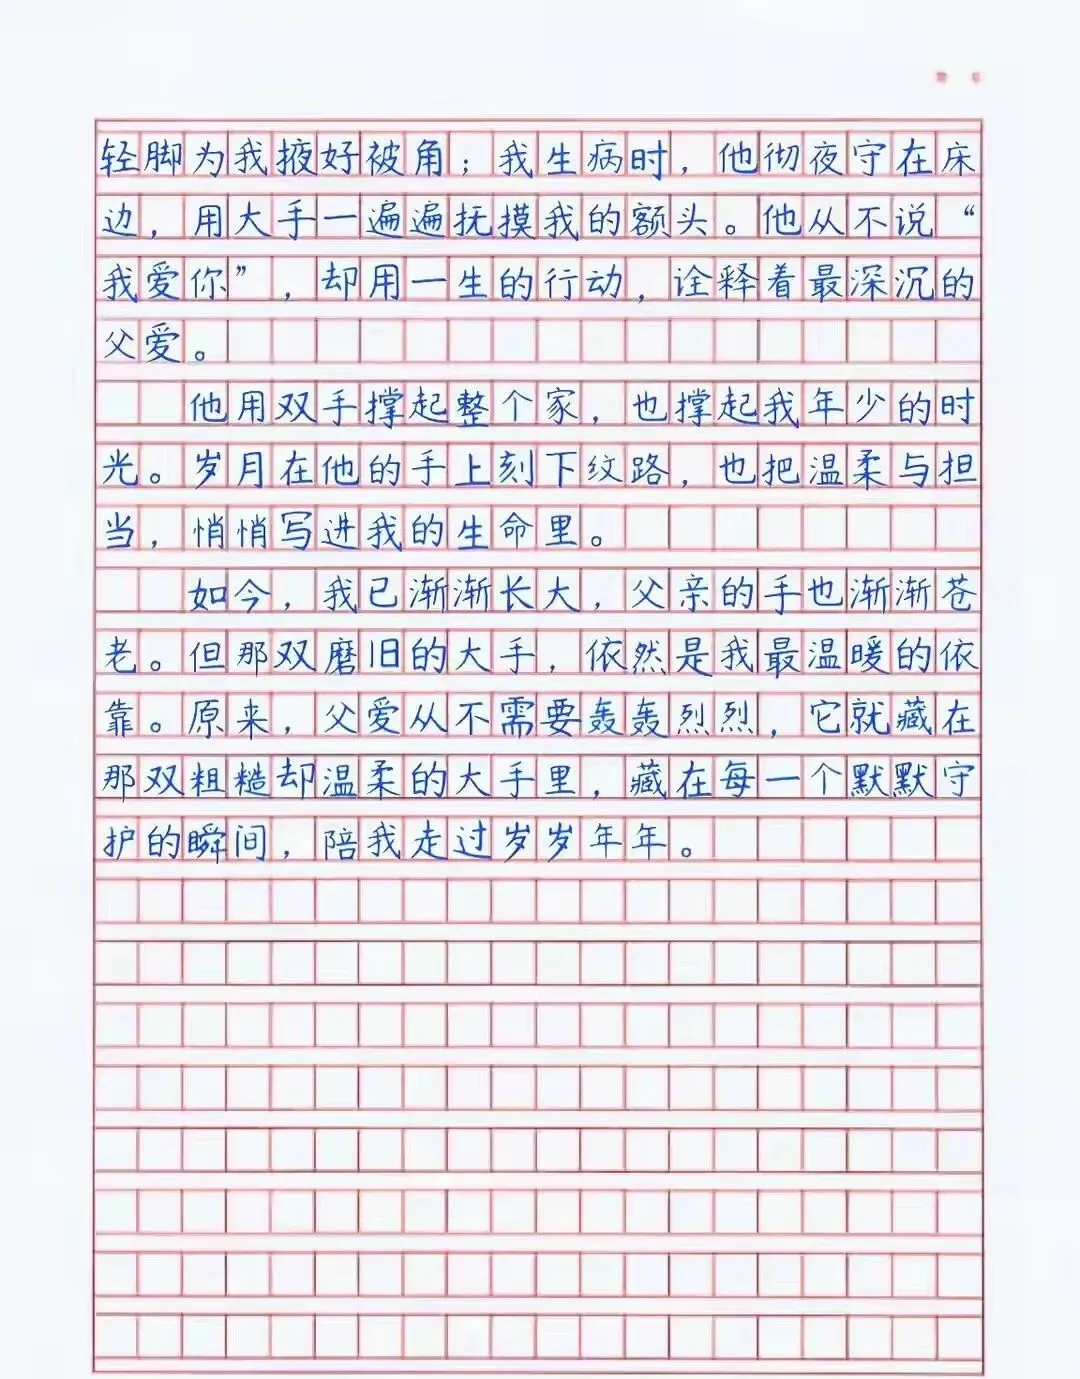 轻脚为我掖好被角；我生病时，他彻夜守在床
边，用大手一遍遍抚摸我的额头。他从不说“
我爱你”，却用一生的行动，诠释着最深沉的
父爱。
他用双手撑起整个家，也撑起我年少的时
光。岁月在他的手上刻下纹路，也把温柔与担
当，悄悄写进我的生命里。
如今，我已渐渐长大，父亲的手也渐渐苍
老。但那双磨旧的大手，依然是我最温暖的依
靠。原来，父爱从不需要轰轰烈烈，它就藏在
那双粗糙却温柔的大手里，藏在每一个默默守
护的瞬间，陪我走过岁岁年年。